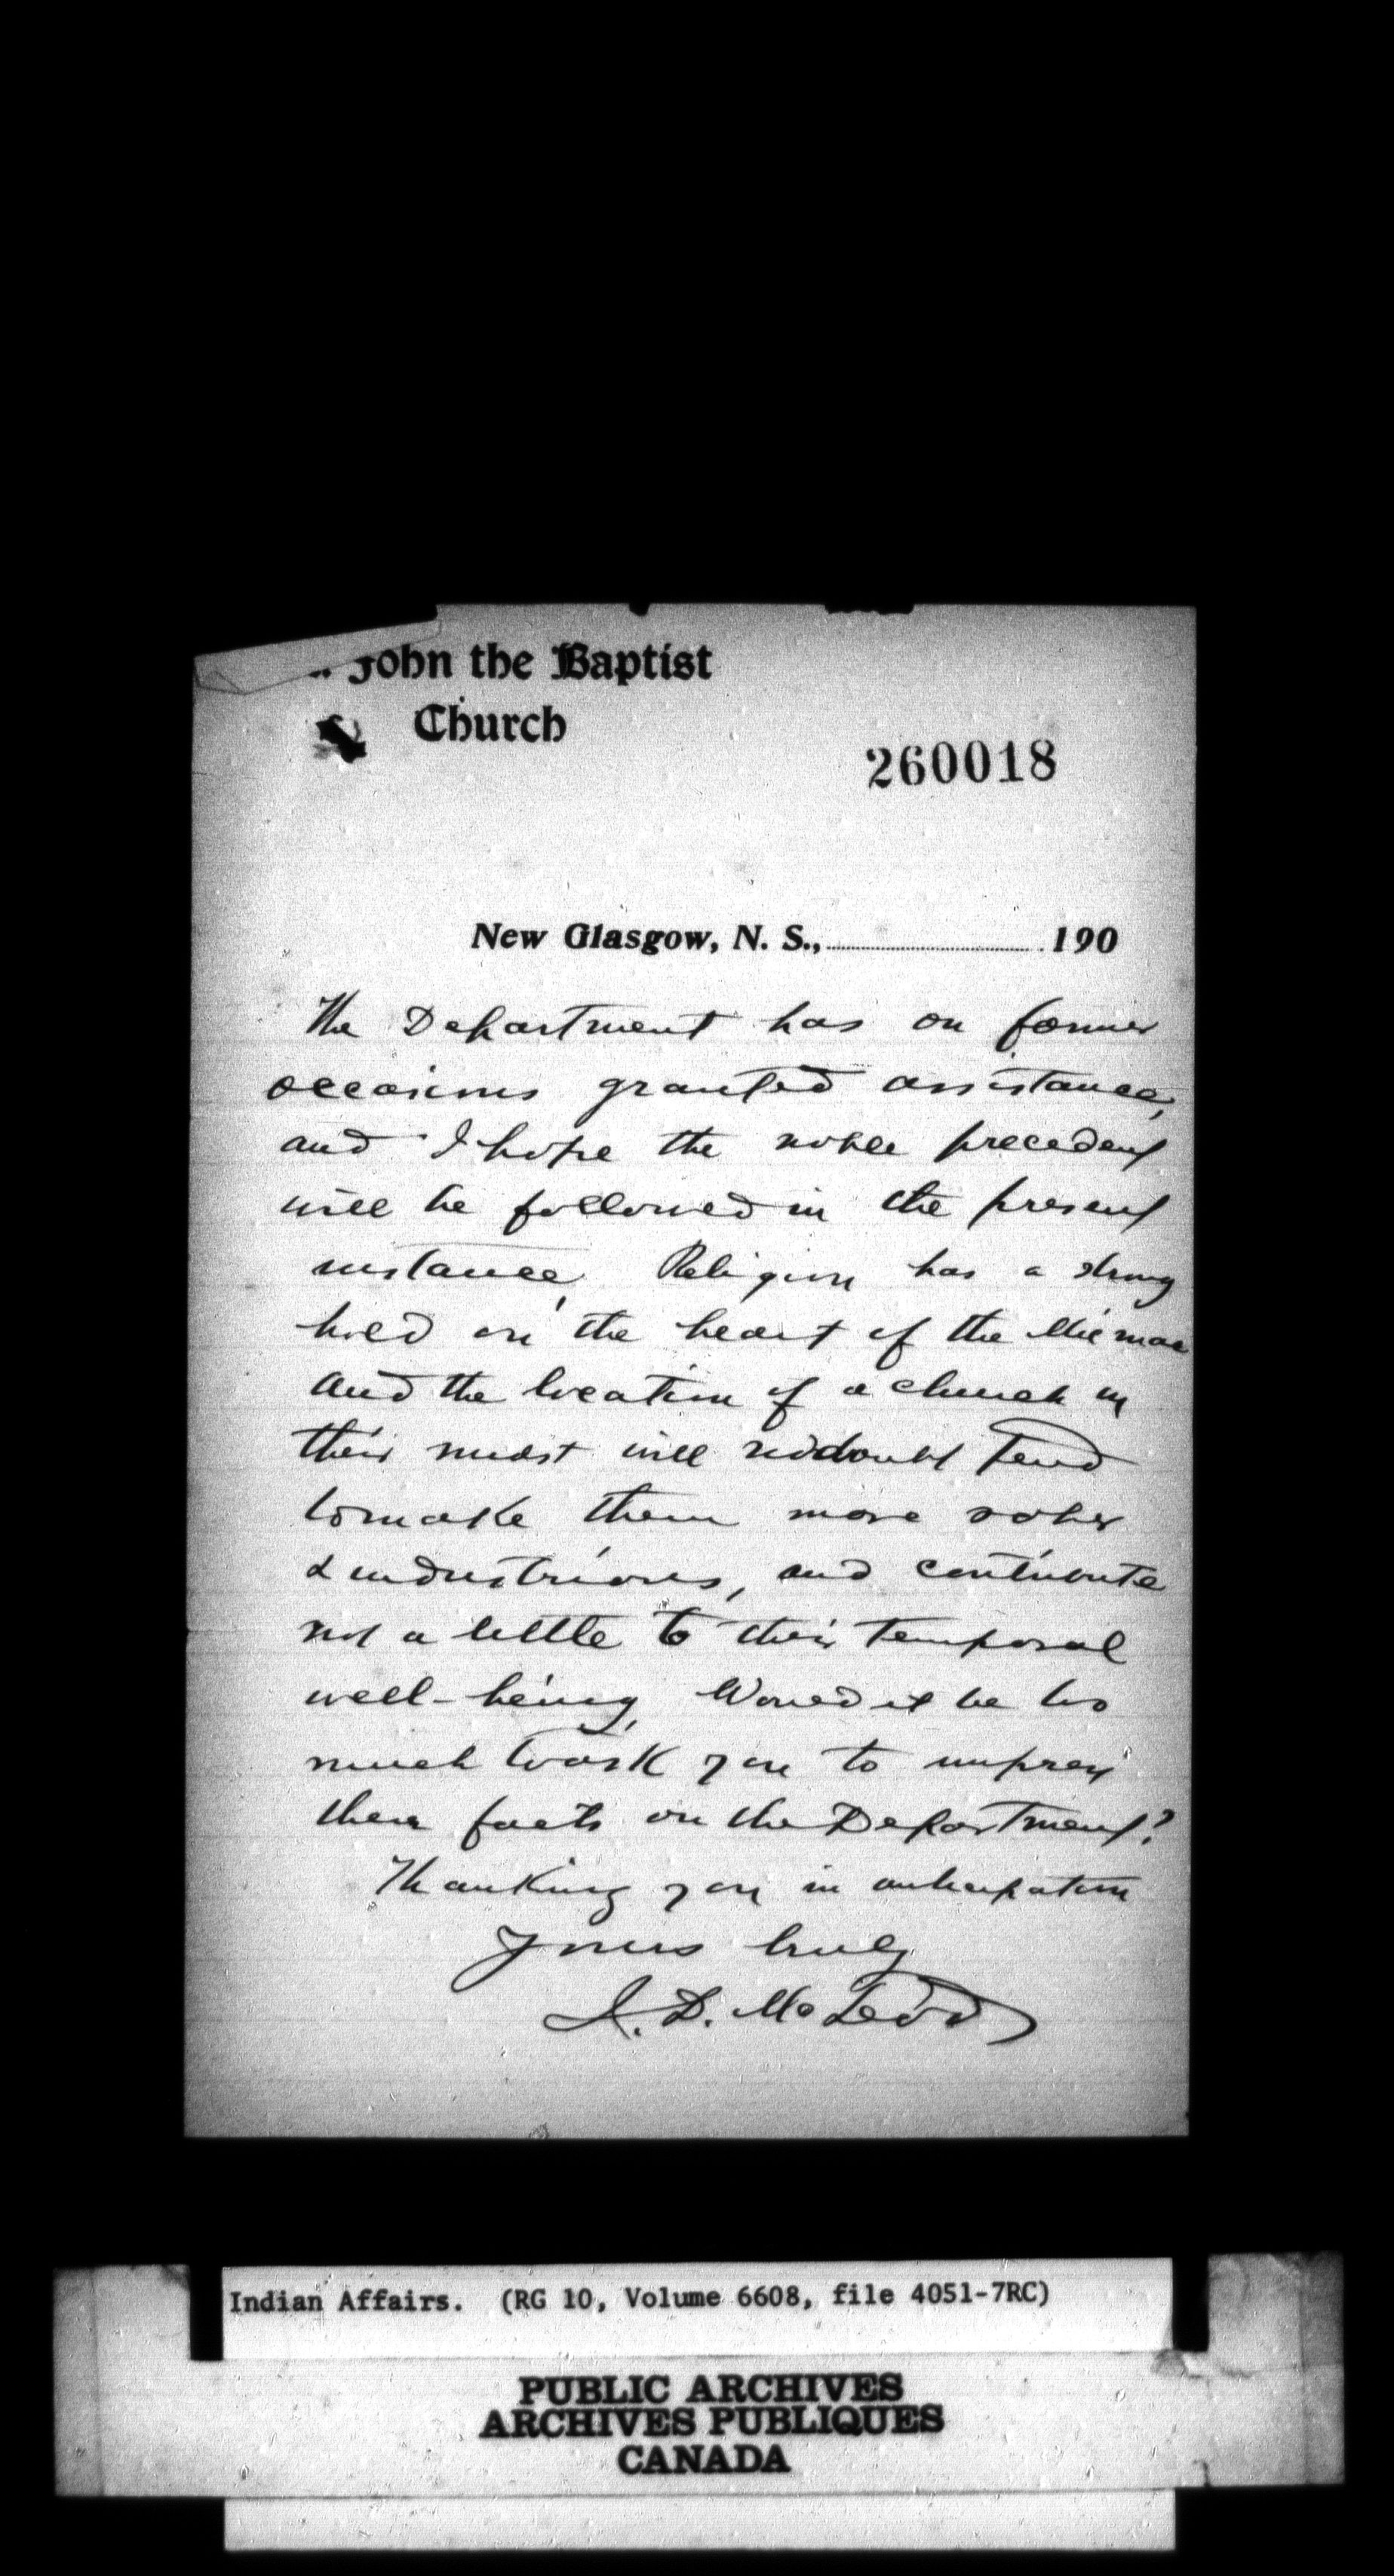 John the Baptist
Church
260018
New Glasgow, N. S., 190
The Department has on former
occasions granted assistance,
and I hope the noble precedent
will be followed in the present
instance, Religion has a strong
hold on the heart of the Micmac
and the location of a church in
their midst will no doubt tend
to make them more sober
& industrious, and contribute
not a little to their temporal
well-being, Would it be too
much work you to impress
these facts on the Department?
Thanking you in anticipation
Yours truly
J. D. McLeod
Indian Affairs. (RG 10, Volume 6608, file 4051-7RC)
PUBLIC ARCHIVES
ARCHIVES PUBLIQUES
CANADA